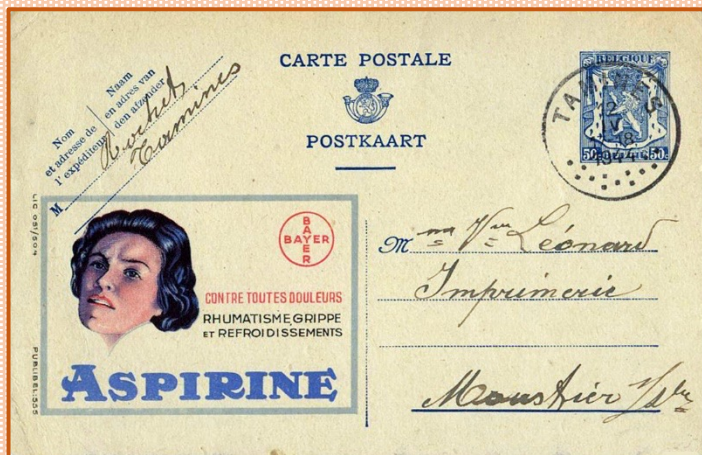 CARTE POSTALE
POSTKAART
Nom
et adresse de
l'expéditeur
Naam
en adres van
den afzender
Rochet
Tamines
M
BELGIQUE
50c 50c
TAMINES
12
IV
18
1944
LIC 051/504
PUBLIBEL 555
BAYER
BAYER
CONTRE TOUTES DOULEURS
RHUMATISME, GRIPPE
ET REFROIDISSEMENTS
ASPIRINE
M me Vve Léonard
Imprimerie
Moustier s/